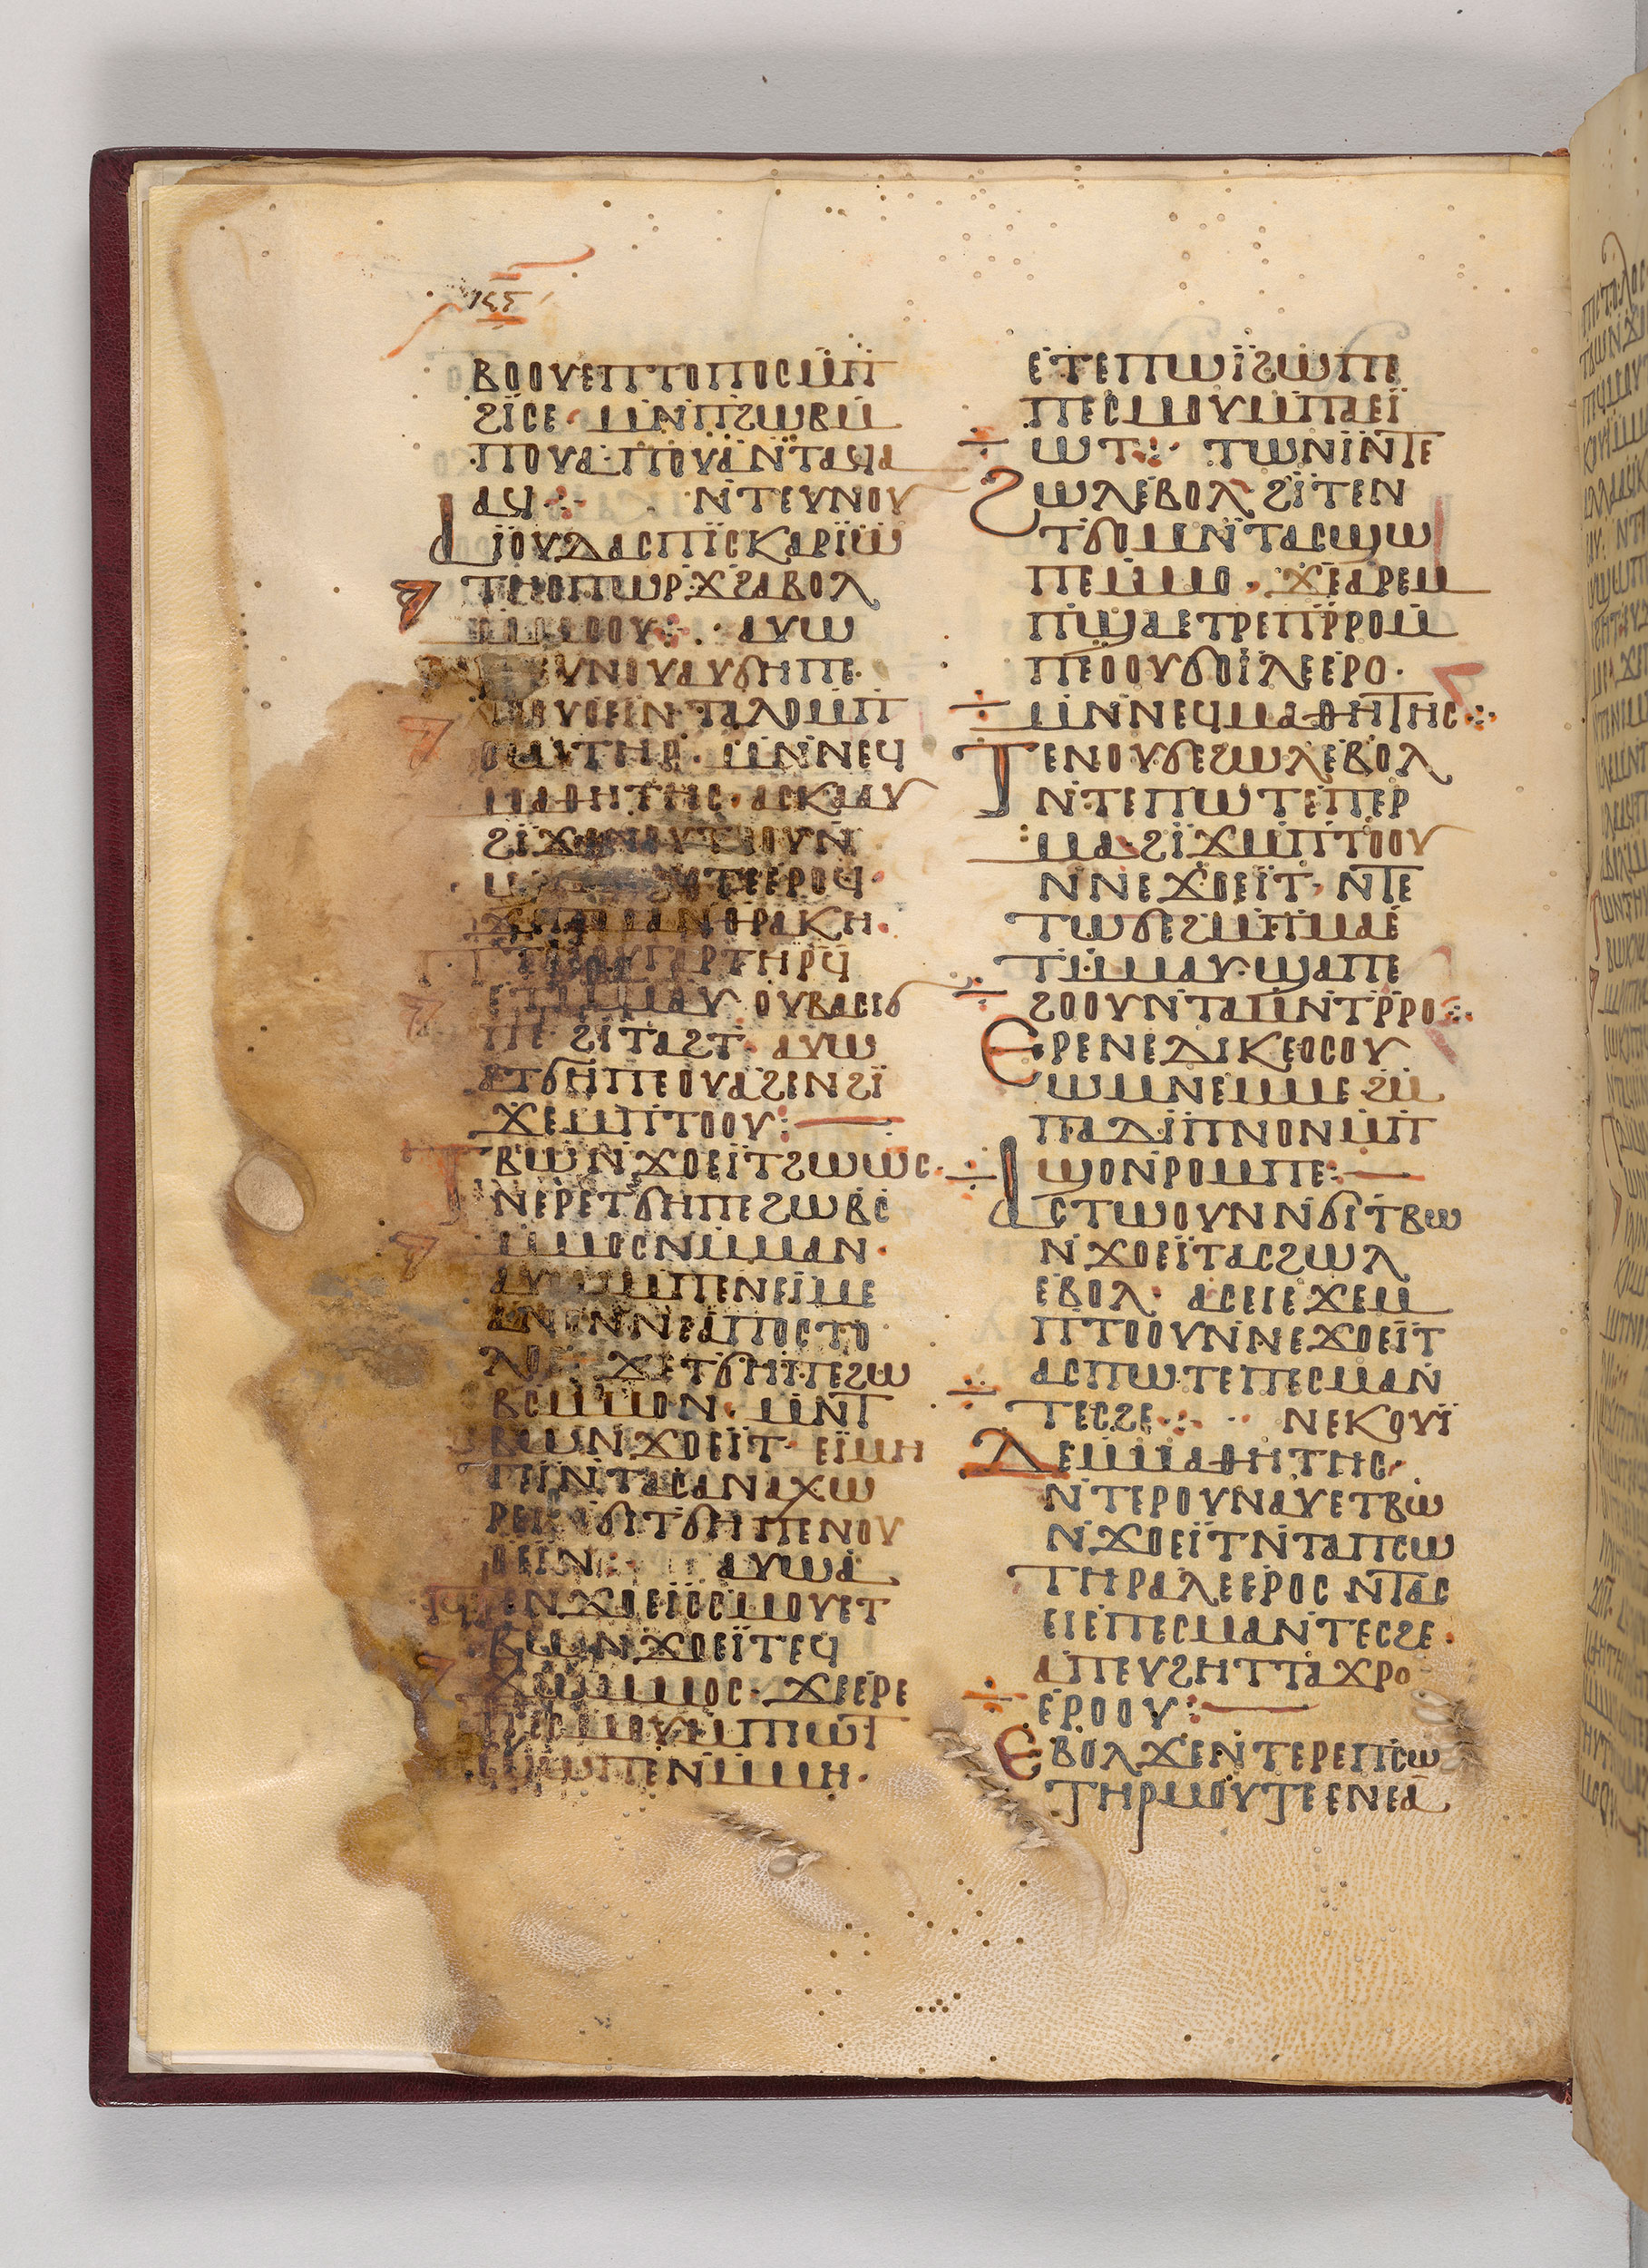 ⲃⲟⲟⲩⲉⲡⲧⲟⲡⲟⲥⲙ̇ⲡ
ϩⲓ̈ⲥⲉ· ⲙⲛ̇ⲡϩⲱⲃⲙ̇
ⲡⲟⲩⲁ·ⲡⲟⲩⲁⲛ̇ⲧⲁϥⲁ
ⲁϥ⁘ ⲛ̇ⲧⲉⲩⲛⲟⲩ
ⲁⲓ̈ⲟⲩⲇⲁⲥⲡⲓ̈ⲥⲕⲁⲣⲓ̈ⲱ
ⲧⲏⲥⲡⲱⲣϫϩⲁⲃⲟⲗ
ⲙ̇ⲙⲟⲟⲩ⁘ ⲁⲩⲱ
ⲩⲛⲟⲩⲁⲩϭⲏⲡⲉ·
ⲟⲩⲟⲉⲓⲛ·ⲧⲁⲗⲟⲙ̇ⲡ
ⲥⲱⲧⲏⲣ· ⲙⲛ̇ⲛⲉϥ
ⲙⲁⲑⲏⲧⲏⲥ·ⲁⲥⲕⲁⲁⲩ
ϩⲓ̈ϫⲛ̇ⲟⲩⲧⲟⲟⲩⲛ̇
ⲉⲣⲟϥ·
ⲙⲁⲛⲑⲣⲁⲕⲏ·
ⲡⲧⲟⲟⲩⲅⲁⲣⲧⲏⲣϥ̄
ⲉⲧⲙ̇ⲙⲁⲩ ⲟⲩⲃⲁⲥⲓϭ
ⲡⲉ ϩⲓ̈ⲧⲁϩⲧ· ⲁⲩⲱ
ⲁⲧϭⲏⲡⲉⲟⲩⲁϩⲉⲛϩⲓ̈
ϫⲉⲙⲡ̇ⲧⲟⲟⲩ:—
ⲧⲃⲱⲛ̇ϫⲟⲉⲓ̈ⲧϩⲱⲱⲥ·
ⲛⲉⲣⲉⲧϭⲏⲡⲉϩⲱⲃⲥ̇
ⲙ̇ⲙⲟⲥⲛⲙ̇ⲙⲁⲛ·
ⲁⲩⲱⲙⲡⲉⲛⲉⲓⲙⲉ
ⲁⲛⲟⲛⲛⲉⲁⲡⲟⲥⲧⲟ
ⲗⲟⲥ ϫⲉⲧϭⲏⲡⲉϩⲱ
ⲃⲥⲙ̇ⲙⲟⲛ· ⲙⲛ̇ⲧ
ⲃⲱⲛ̇ϫⲟⲉⲓ̈ⲧ· ⲉⲓ̈ⲙⲏ
ⲧⲓⲛ̇ⲧⲁⲥⲁⲛⲁⲭⲱ
ⲣⲉⲓⲛ̇ϭⲓⲧϭⲏⲡⲉⲛⲟⲩ
ⲟⲉⲓⲛ: ⲁⲩⲱⲁ
ⲡϫⲟⲉⲓ̈ⲥⲥⲙⲟⲩⲉⲧ
ⲃⲱⲛ̇ϫⲟⲉⲓ̈ⲧⲉϥ
ϫⲱⲙ̇ⲙⲟⲥ· ϫⲉⲉⲣⲉ
ⲡⲉⲥⲙⲟⲩⲙ̇ⲡⲓⲱⲧ
ϣⲱⲡⲉⲛⲙ̇ⲙⲏ·
ⲉⲧⲉⲡⲱⲓ̈ϩⲱⲡⲉ
ⲡⲉⲥⲙⲟⲩⲙ̇ⲡⲁⲉⲓ̈
ⲱⲧ⁘ ⲧⲱⲛⲓ̇ⲛ̇ⲧⲉ
ϩⲱⲗⲉⲃⲟⲗϩⲓ̈ⲧⲉⲛ
ⲧϭⲟⲙⲛ̇ⲧⲁⲥϣⲱ
ⲡⲉⲙ̇ⲙⲟ· ϫⲉⲁⲣⲉⲙ
ⲡϣⲁⲉⲧⲣⲉⲡⲣ̇ⲣⲟⲙ̇
ⲡⲉⲟⲟⲩϭⲟⲓ̈ⲗⲉⲉⲣⲟ·
ⲙⲛ̇ⲛⲉϥⲙⲁⲑⲏⲧⲏⲥ⁘
ⲧⲉⲛⲟⲩϭⲉϩⲱⲗⲉⲃⲟⲗ
ⲛ̇ⲧⲉⲡⲱⲧⲉⲡⲉⲣ
ⲙⲁ·ϩⲓ̈ϫⲙⲡ̇ⲧⲟⲟⲩ
ⲛⲛⲉϫⲟⲉⲓ̈ⲧ· ⲛ̇ⲧⲉ
ⲧⲱϭⲉϩⲙ̇ⲡⲙⲁⲉ
ⲧⲙ̇ⲙⲁⲩ·ϣⲁⲡⲉ
ϩⲟⲟⲩⲛ̇ⲧⲁⲙⲛ̇ⲧⲣ̇ⲣⲟ⁘
ⲉⲣⲉⲛⲉⲇⲓⲕⲉⲟⲥⲟⲩ
ⲱⲙⲛⲉⲙⲙⲉ·ϩⲙ̇
ⲡⲁⲇⲓ̈ⲡⲛⲟⲛⲙ̇ⲡ
ϣⲟⲛ̇ⲣⲟⲙⲡⲉ:—
ⲁⲥⲧⲱⲟⲩⲛⲛ̇ϭⲓⲧⲃⲱ
ⲛ̇ϫⲟⲉⲓ̈ⲧⲁⲥϩⲱⲗ
ⲉⲃⲟⲗ· ⲁⲥⲉⲓⲉϫⲉⲙ
ⲡⲧⲟⲟⲩⲛ̇ⲛⲉϫⲟⲉⲓ̈ⲧ
ⲁⲥⲡⲱⲧⲉⲡⲉⲥⲙⲁⲛ̇
ⲧⲉⲥϩⲉ⁘ ·· ⲛⲉⲕⲟⲩⲓ̈
ⲇⲉⲙ̇ⲙⲁⲑⲏⲧⲏⲥ·
ⲛ̇ⲧⲉⲣⲟⲩⲛⲁⲩⲉⲧⲃⲱ
ⲛ̇ϫⲟⲉⲓ̈ⲧⲛ̇ⲧⲁⲡⲥⲱ
ⲧⲏⲣⲁⲗⲉⲉⲣⲟⲥ ⲛ̇ⲧⲁⲥ
ⲉⲓⲉⲡⲉⲥⲙⲁⲛ̇ⲧⲉⲥϩⲉ·
ⲁⲡⲉⲩϩⲏⲧⲧⲁϫⲣⲟ
ⲉⲣⲟⲟⲩ:—
ⲉⲃⲟⲗϫⲉⲛ̇ⲧⲉⲣⲉⲡⲥⲱ
ⲧⲏⲣⲙⲟⲩⲧⲉⲉⲛⲉⲁ